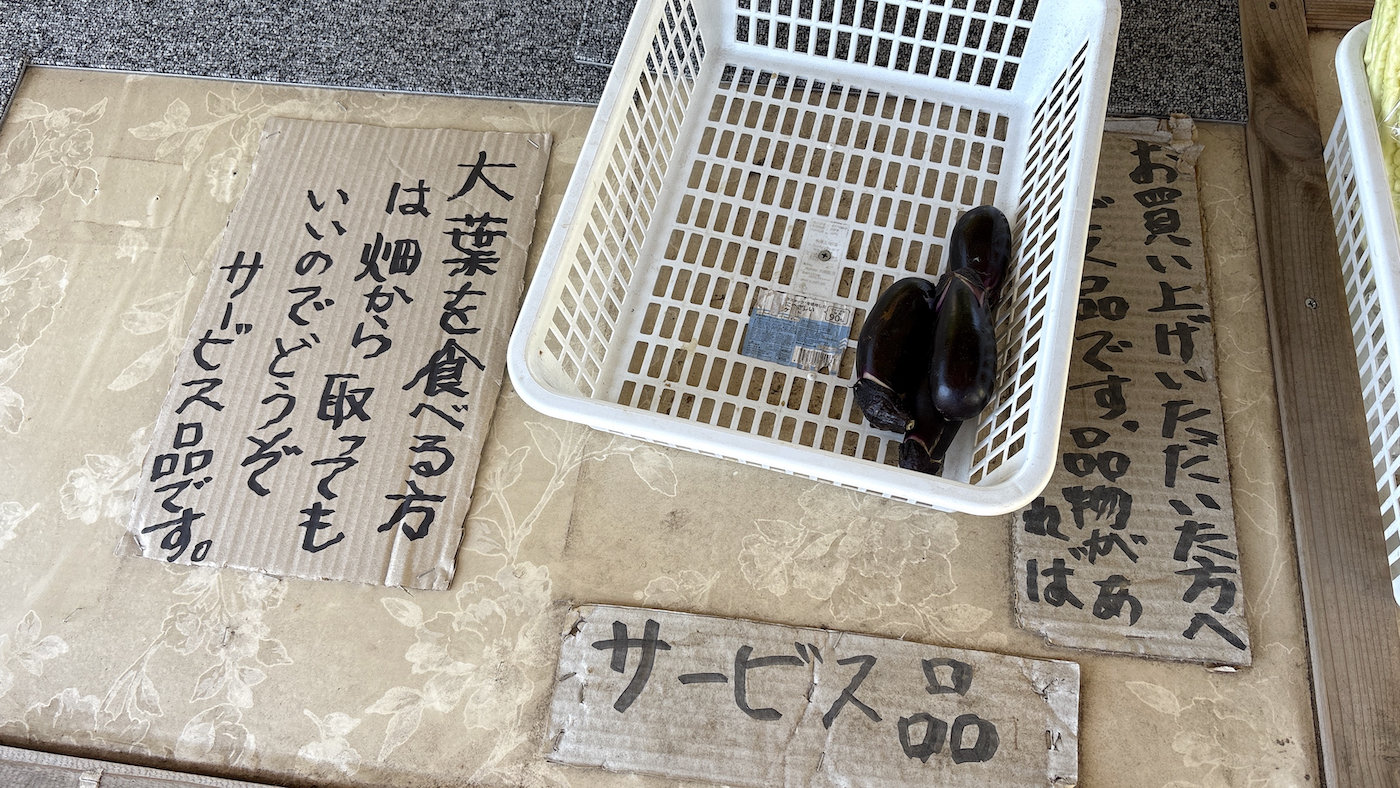 大葉を食べる方
は畑から取っても
いいのでどうぞ
サービス品です。
お買い上げいただいた方へ
ビス品です、品物があ
れば
サービス品